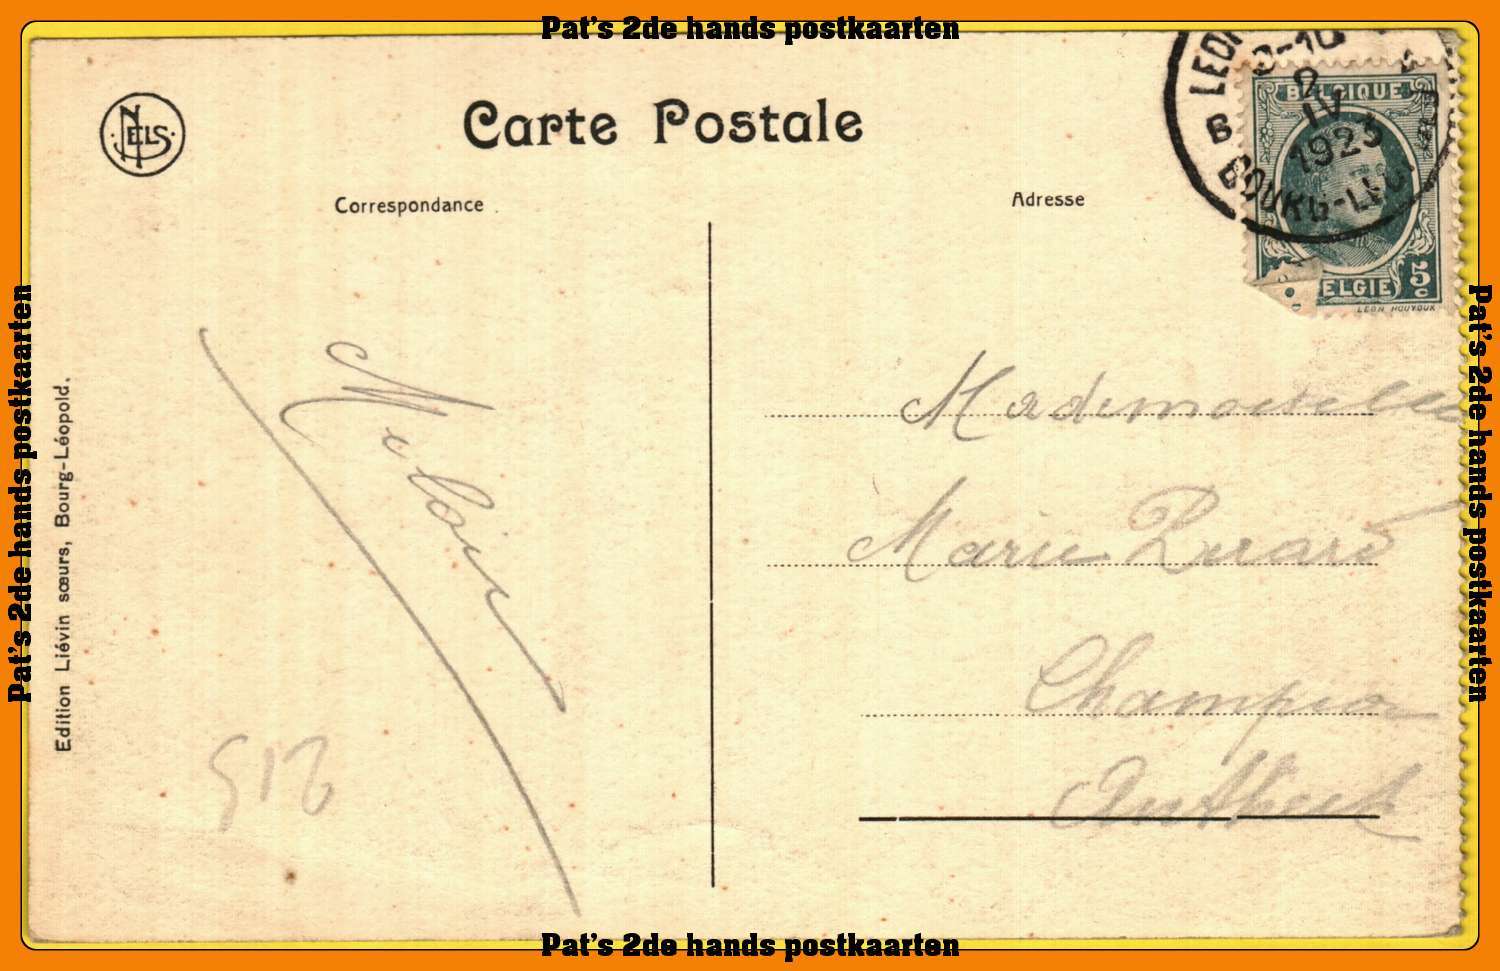 Pat's 2de hands postkaarten
NELS
Carte Postale
Correspondance
Adresse
B LEOP
9-10
2
IV
1923
BOURG-LEOP
BELGIQUE
BELGIE 5 c
LEON HOUYOUX
Mademoiselle
Marie
Champion
Antheit
215
Edition Liévin sœurs, Bourg-Léopold.
Pat's 2de hands postkaarten
Pat's 2de hands postkaarten
Pat's 2de hands postkaarten